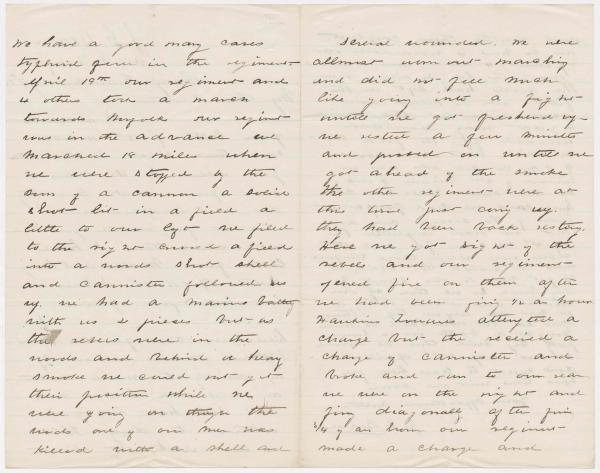 We have a good many cases
typhoid fever in the regiment
April 19th our regiment and
4 others took a march
towards Norfolk our regiment
was in the advance we
marched 18 miles when
we were stopped by the
sound of a cannon a solid
shot lit in a field a
little to our left we filed
to the right crossed a field
into a woods shot shell
and cannister followed us
up. we had a marine battery
with us 4 pieces but as
the rebels were in the
woods and behind a heavy
smoke we could not get
their position while we
were going on through the
woods one of our men was
killed with a shell and
several wounded. We were
allmost worn out marching
and did not feel much
like going into a fight
untill we got freshend up
we rested a few minutes
and pressed on untill we
got ahead of the smoke
the other regiment were at
this time just coming up.
they had been back resting.
Here we got sight of the
rebels and our regiment
opened fire on them after
we had been firing ½ an hour
Hawkins Zouaves attempted a
charge but the received a
charge of cannister and
broke and run to our rear
we were on the right and
firing diagonally after firing
¾ of an hour our regiment
made a charge and